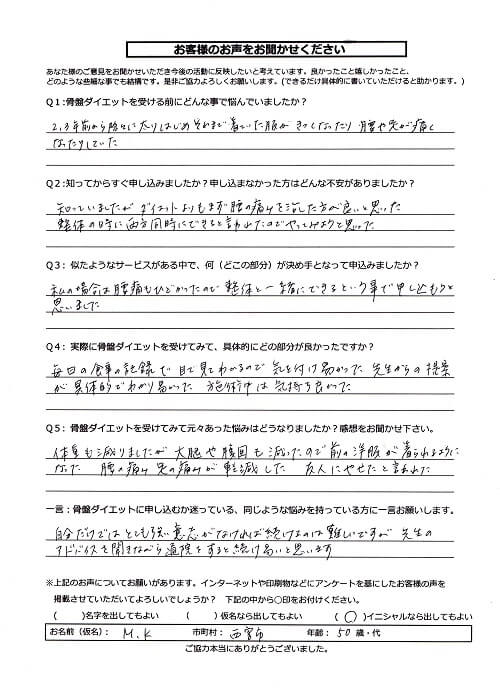 お客様のお声をお聞かせください
あなた様のご意見をお聞かせいただき今後の活動に反映したいと考えています。良かったこと嬉しかったこと、
どのような些細な事でも結構です。是非ご協力よろしくお願いします。(できるだけ具体的に書いていただけると助かります。)
Q1:骨盤ダイエットを受ける前にどんな事で悩んでいましたか?
2,3年前から徐々に太りはじめ それまで着ていた服が きつくなったり 腰や が痛く
なったりしていた
Q2:知ってからすぐ申し込みましたか?申し込まなかった方はどんな不安がありましたか?
知っていましたが ダイエットよりもまず腰の痛みを治した方が良いと思った
整体の時に両方同時にできると言われたのでやってみようと思った
Q3:似たようなサービスがある中で、何(どこの部分)が決め手となって申込みましたか?
私の場合は腰痛もひどかったので 整体と一緒にできるという事で申し込もうと
思いました
Q4:実際に骨盤ダイエットを受けてみて、具体的にどの部分が良かったですか?
毎日の食事の記録で目で見てわかるので 気を付け易かった 先生からの提案
が具体的でわかり易かった 施術中は気持ち良かった
Q5:骨盤ダイエットを受けてみて元々あった悩みはどうなりましたか?感想をお聞かせ下さい。
体重も減りましたが 太腿や腹囲も減ったので前の洋服が着られるように
なった 腰の痛み の痛みが軽減した 友人にやせたと言われた
一言:骨盤ダイエットに申し込むか迷っている、同じような悩みを持っている方に一言お願いします。
自分だけではとても強い意志がなければ続けるのは難しいですが 先生の
アドバイスを聞きながら通院をすると続け易いと思います
※上記のお声についてお願いがあります。インターネットや印刷物などにアンケートを基にしたお客様の声を
掲載させていただいてよろしいでしょうか? 下記の中から○印をお付けください。
( )名字を出してもよい ( )仮名なら出してもよい (○)イニシャルなら出してもよい
お名前(仮名): M.K 市町村: 西宮市 年齢: 50 歳・代
ご協力本当にありがとうございました。